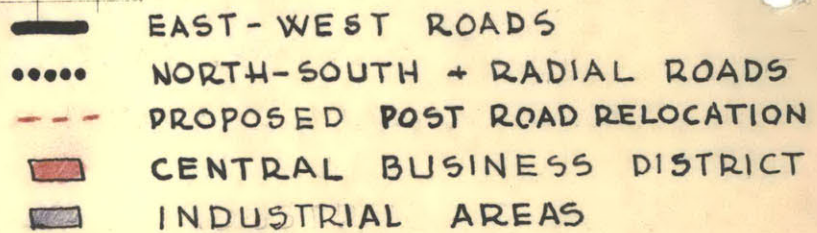 EAST-WEST ROADS
NORTH-SOUTH + RADIAL ROADS
PROPOSED POST ROAD RELOCATION
CENTRAL BUSINESS DISTRICT
INDUSTRIAL AREAS